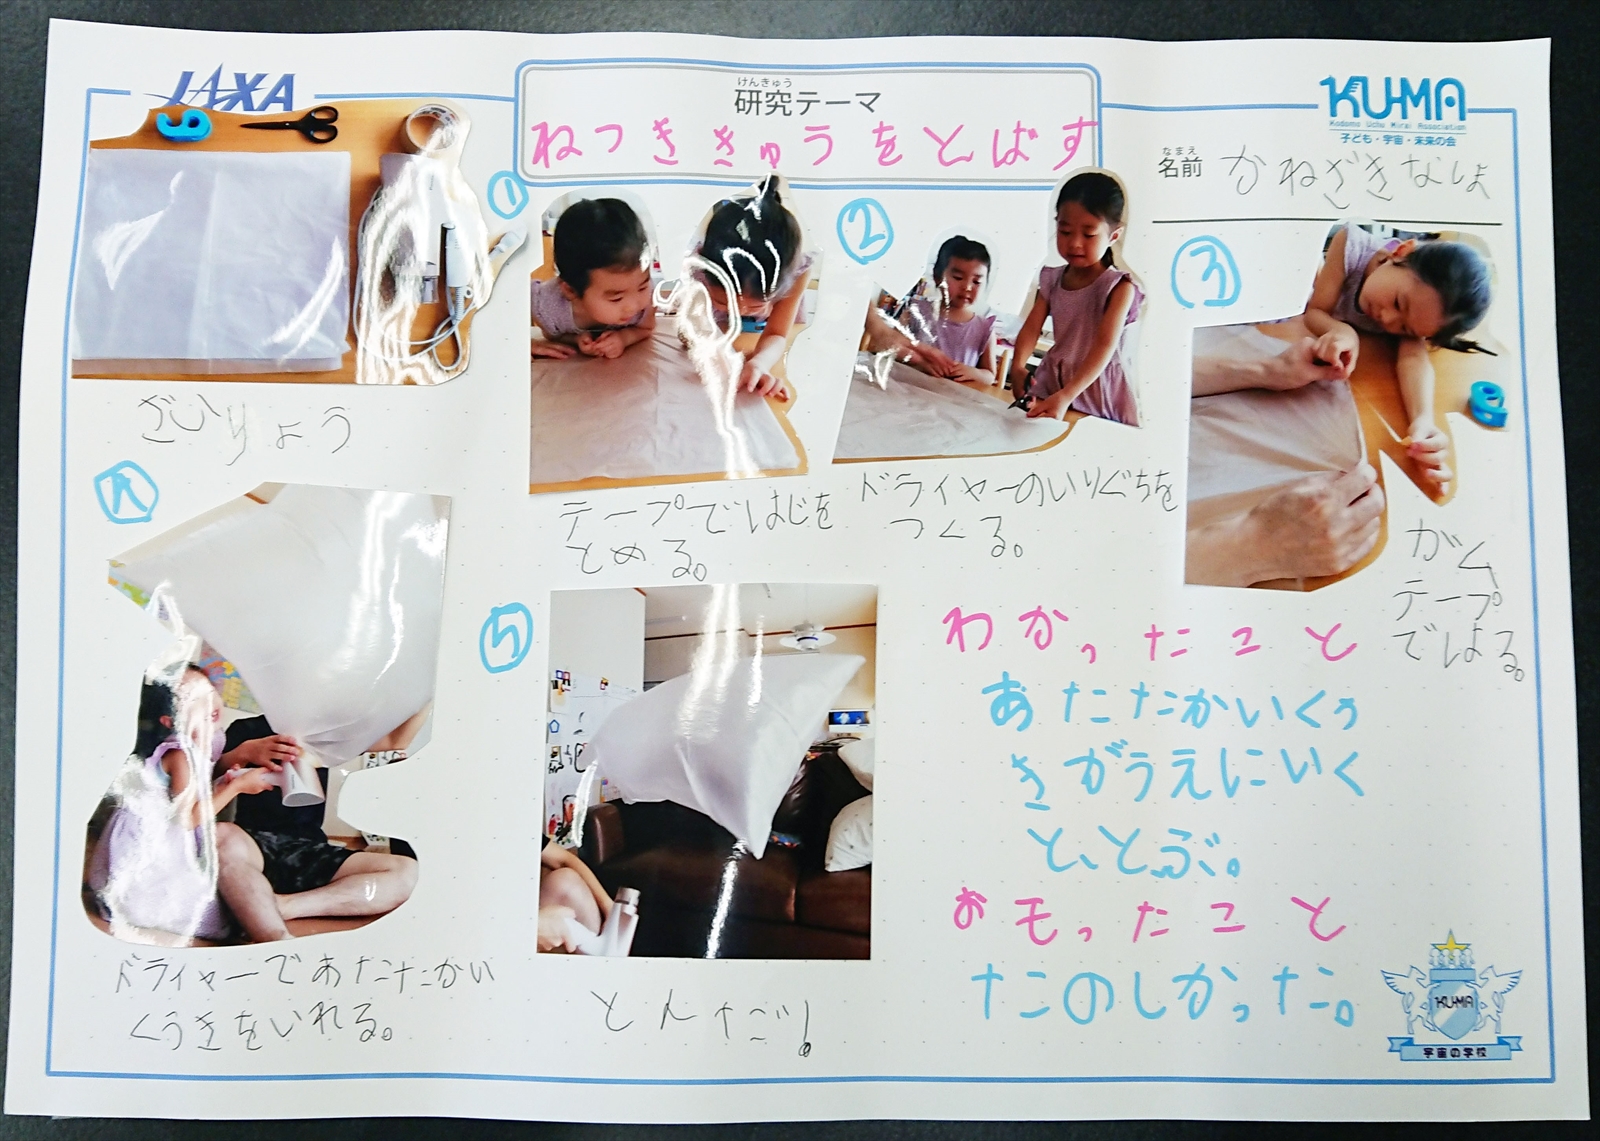 JAXA
けんきゅう
研究テーマ
ねつききゅうをとばす
KU-MA
Kodomo Uchu Mirai Association
子ども・宇宙・未来の会
なまえ
名前 かねざきなしょ
ざいりょう
①
テープではじを
とめる。
②
ドライヤーのいりぐちを
つくる。
③
がむ
テープ
ではる。
ドライヤーであたたかい
くうきをいれる。
⑤
とんだ!
わかったこと
あたたかいくう
きがうえにいく
と、とぶ。
おもったこと
たのしかった。
KU-MA
宇宙の学校